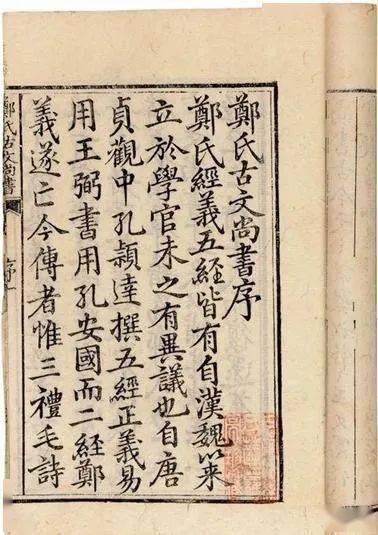 鄭氏古文尚書序
鄭氏經義五經皆有自漢魏以来
立於學官未之有異議也自唐
貞觀中孔穎達撰五經正義易
用王弼書用孔安國而二經鄭
義遂亡今傳者惟三禮毛詩
鄭氏古文尚書
序